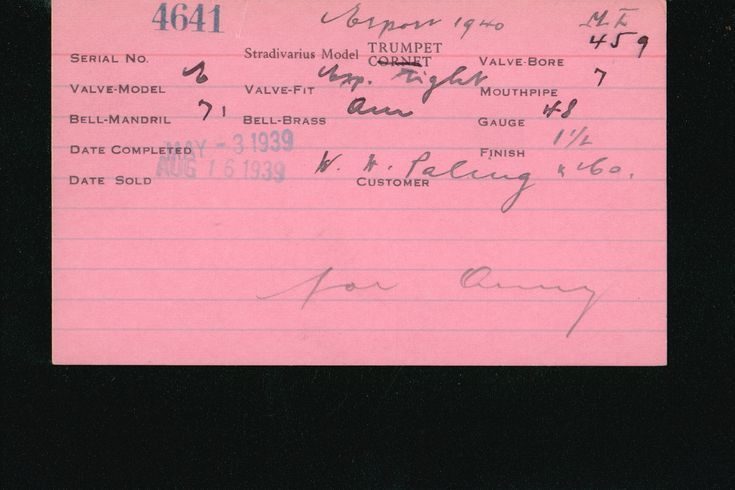 4641 Export 1940 ML
SERIAL NO. Stradivarius Model TRUMPET CORNET VALVE-BORE 459
VALVE-MODEL VALVE-FIT Exp. Tight MOUTHPIPE 7
BELL-MANDRIL 71 BELL-BRASS GAUGE 48
DATE COMPLETED MAY -3 1939 FINISH 1 1/2
DATE SOLD AUG 16 1939 CUSTOMER W. H. Paling & Co.
for